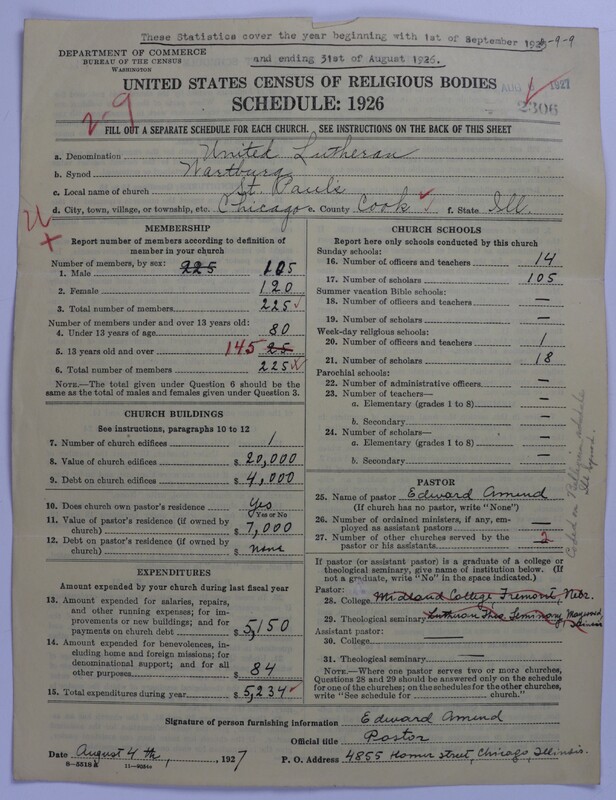 These Statistics cover the year beginning with 1st of September 1925
8-9-9
and ending 31st of August 1926.
DEPARTMENT OF COMMERCE
BUREAU OF THE CENSUS
WASHINGTON
UNITED STATES CENSUS OF RELIGIOUS BODIES
SCHEDULE: 1926
1927
2306
2-9
FILL OUT A SEPARATE SCHEDULE FOR EACH CHURCH. SEE INSTRUCTIONS ON THE BACK OF THIS SHEET
a. Denomination United Lutheran
b. Synod Wartburg
c. Local name of church St. Paul's
d. City, town, village, or township, etc. Chicago e. County Cook f. State Ill.
MEMBERSHIP
Report number of members according to definition of
member in your church
Number of members, by sex: 225
1. Male 105
2. Female 120
3. Total number of members 225
Number of members under and over 13 years old:
4. Under 13 years of age 80
5. 13 years old and over 145 25
6. Total number of members 225
NOTE.—The total given under Question 6 should be
the same as the total of males and females given under Question 3.
CHURCH BUILDINGS
See instructions, paragraphs 10 to 12
7. Number of church edifices 1
8. Value of church edifices $ 20,000
9. Debt on church edifices $ 4,000
10. Does church own pastor's residence Yes
Yes or No
11. Value of pastor's residence (if owned by
church) $ 7,000
12. Debt on pastor's residence (if owned by
church) $ none
EXPENDITURES
Amount expended by your church during last fiscal year
13. Amount expended for salaries, repairs,
and other running expenses; for im-
provements or new buildings; and for
payments on church debt $ 5,150
14. Amount expended for benevolences, in-
cluding home and foreign missions; for
denominational support; and for all
other purposes $ 84
15. Total expenditures during year $ 5,234
CHURCH SCHOOLS
Report here only schools conducted by this church
Sunday schools:
16. Number of officers and teachers 14
17. Number of scholars 105
Summer vacation Bible schools:
18. Number of officers and teachers —
19. Number of scholars —
Week-day religious schools:
20. Number of officers and teachers 1
21. Number of scholars 18
Parochial schools:
22. Number of administrative officers —
23. Number of teachers—
a. Elementary (grades 1 to 8) —
b. Secondary —
24. Number of scholars—
a. Elementary (grades 1 to 8) —
b. Secondary —
PASTOR
25. Name of pastor Edward Amend
(If church has no pastor, write "None")
26. Number of ordained ministers, if any, em-
ployed as assistant pastors —
27. Number of other churches served by the
pastor or his assistants 2
If pastor (or assistant pastor) is a graduate of a college or
theological seminary, give name of institution below. (If
not a graduate, write "No" in the space indicated.)
Pastor:
28. College Midland College, Fremont, Nebr.
29. Theological seminary Lutheran Theo. Seminary, Maywood, Illinois
Assistant pastor:
30. College —
31. Theological seminary —
NOTE.—Where one pastor serves two or more churches,
Questions 28 and 29 should be answered only on the schedule
for one of the churches; on the schedules for the other churches,
write "See schedule for church."
Signature of person furnishing information Edward Amend
Official title Pastor
Date August 4th, 1927 P. O. Address 4855 Homer street, Chicago, Illinois.
8-5518 a 11-9234a